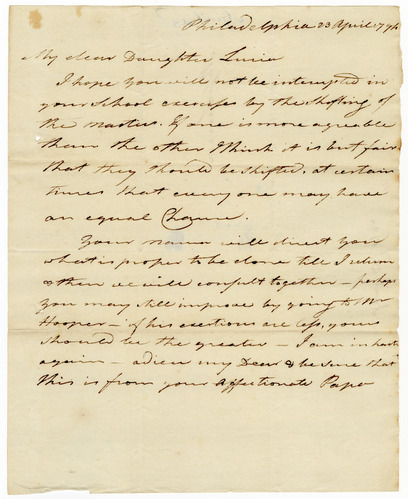 Philadelphia 23 April 1794
My dear Daughter Lucia
I hope you will not be interrupted in
your school exercises by the shifting of
the Masters. If one is more agreable
than the other I think it is but fair
that they should be shifted, at certain
times that every one may have
an equal Chance.
Your mama will direct you
what is proper to be done till I return
& then we will consult together – perhaps
you may still improve by going to Mr
Hooper – if his exertions are less, yours
should be the greater – I am in haste
again – adieu my Dear & be sure that
this is from your affectionate Papa